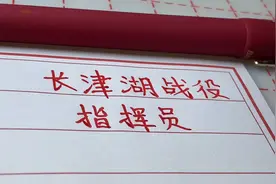 长津湖战役
指挥员